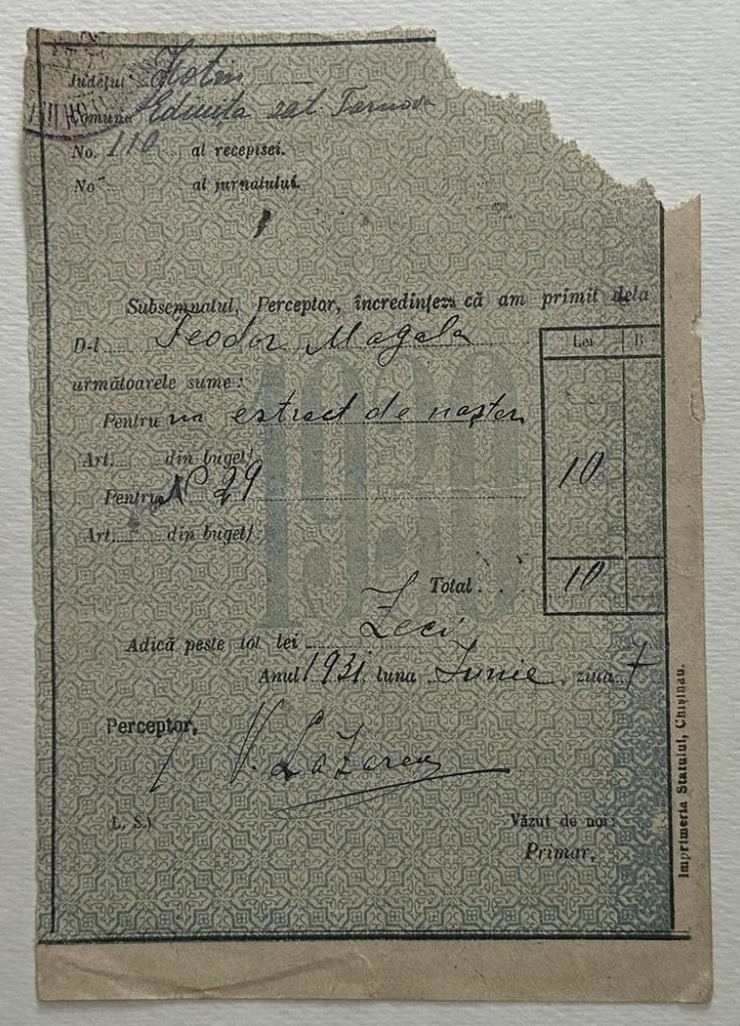 Județul Hotin
Comuna Edinița sat Tarnova
No. 110 al recepisei.
No al jurnalului.
Subsemnatul, Perceptor, încredințez că am primit dela
D-l Teodor Magala
Lei B
următoarele sume:
Pentru un estract de naștere
Art. din buget
10
Pentru No 29
Art. din buget
1930
Total 10
Adică peste tot lei Zeci
Anul 1931 luna Iunie, ziua 7
Perceptor,
V. Lazarev
(L. S.)
Văzut de noi:
Primar,
Imprimeria Statului, Chișinau.